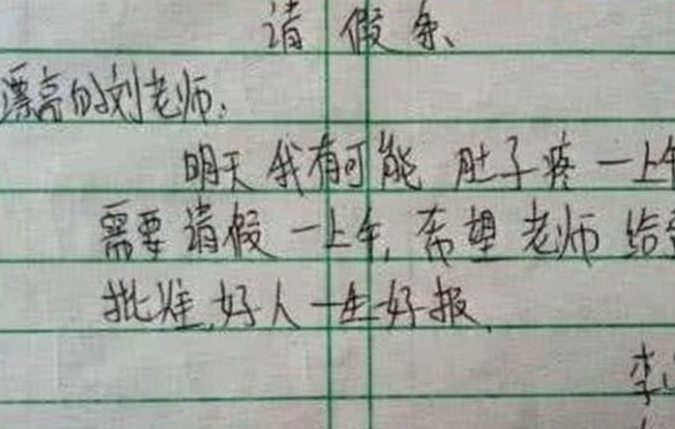 请假条
漂亮的刘老师:
明天我有可能肚子疼一上午
需要请假一上午,希望老师给
批准,好人一生好报.
李